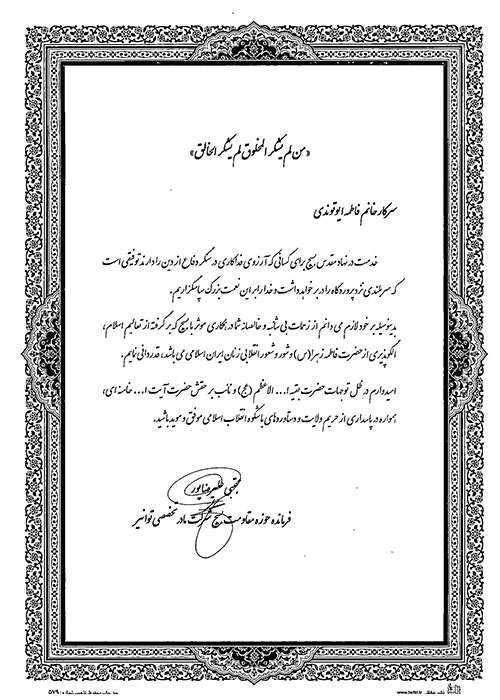 «من لم یشکر المخلوق لم یشکر الخالق»
سرکار خانم فاطمه ایوتوندی
خدمت در نهاد مقدس بسیج برای کسانی که آرزوی فداکاری در سنگر دفاع از دین را دارند توفیقی است
که سربلندی نزد پروردگاه را در بر خواهد داشت و خدا را بر این نعمت بزرگ سپاسگزاریم.
بدینوسیله بر خود لازم می دانم از زحمات بی شائبه و خالصانه شما در همکاری موثر با بسیج که برگرفته از تعالیم اسلام،
الگوپذیری از حضرت فاطمه زهرا(س) و شور و شعور انقلابی زنان ایران اسلامی می باشد، قدردانی نمایم.
امیدوارم در ظل توجهات حضرت بقیه ا... الاعظم (عج) و نائب بر حقش حضرت آیت ا... خامنه ای،
همواره در پاسداری از حریم ولایت و دستاوردهای باشکوه انقلاب اسلامی موفق و موید باشید.
مجتبی علیرضاپور
فرمانده حوزه مقاومت بسیج شرکت مادر تخصصی توانیر